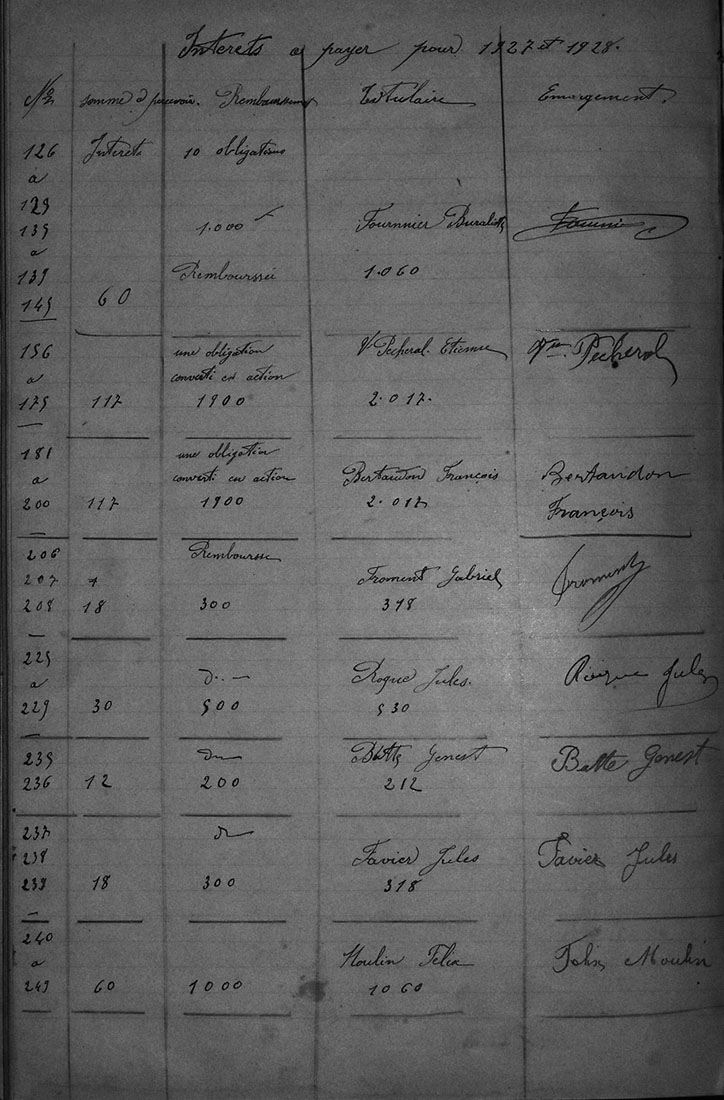 Interets a payer pour 1927 et 1928.
Nos somme a percevoir. Remboursement Titulaire Emargement.
126 Interets 10 obligations
a
129
135 1.000 Fournnier Buraliste
a
139 Rembourssée 1.060
145 60
156 une obligation V Pecheral Etienne Vve Pecheral
a converti en action
175 117 1900 2.017.
181 une obligation
a converti en action Bertaudon François Bertandon
200 117 1900 2.017 François
206 Rembourssé
207 Froment Gabriel Froment
208 18 300 318
225 d° Roque Jules. Roque Jules
a
229 30 500 530
235 d° Batte Genest Batte Genest
236 12 200 212
237 d°
238 Favier Jules Favier Jules
239 18 300 318
240
a Moulin Felix Felix Moulin
249 60 1000 1060